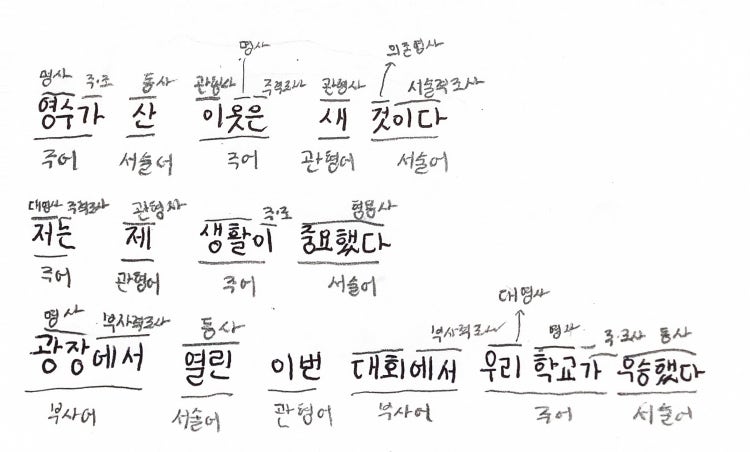 명사 의존명사
명사 주·조 동사 관형사 주격조사 관형사 서술격조사
영수가 산 이옷은 새 것이다
주어 서술어 주어 관형어 서술어
대명사 주격조사 관형사 주·조 형용사
저는 제 생활이 중요했다
주어 관형어 주어 서술어
대명사
명사 부사격조사 동사 부사격조사 명사 주·조사 동사
광장에서 열린 이번 대회에서 우리 학교가 우승했다
부사어 서술어 관형어 부사어 주어 서술어